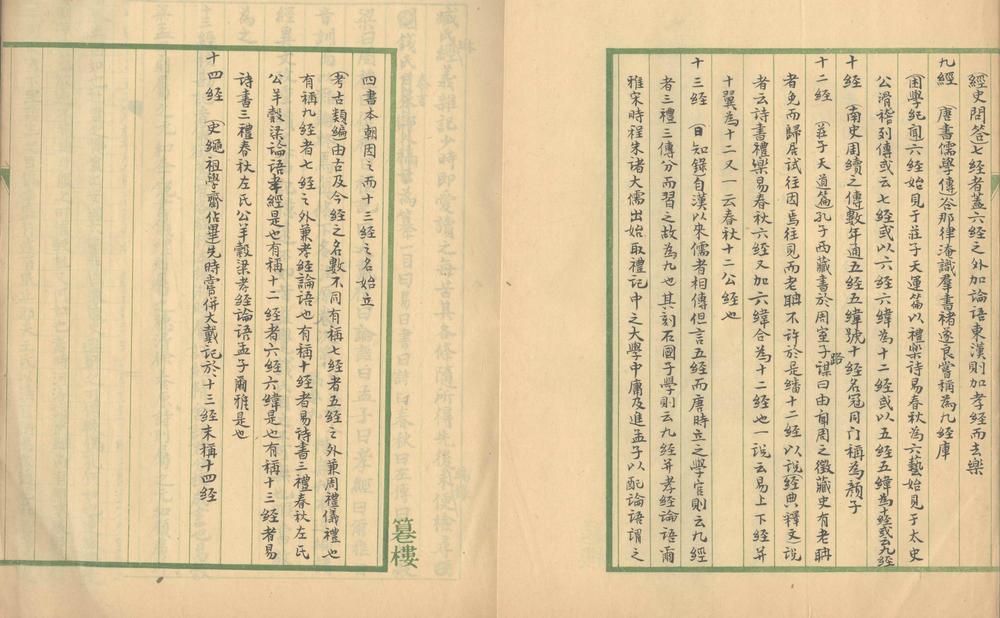 經史問答七經者蓋六經之外加論語東漢則加孝經而去樂
九經 (唐書儒學傳)谷那律淹識羣書褚遂良嘗稱為九經庫
(困學紀聞)六經始見于莊子天運篇以禮樂詩易春秋為六藝始見于太史
公滑稽列傳或云七經或以六經六緯為十二經或以五經五緯為十經或云九經
十經 (南史周續之傳數年通五經五緯號十經名冠同門稱為顏子
十二經 (莊子天道篇)孔子西藏書於周室子路謀曰由聞周之徵藏史有老聃
者免而歸居試往因焉往見而老聃不許於是繙十二經以說(經典釋文)說
者云詩書禮樂易春秋六經又加六緯合為十二經也一說云易上下經并
十翼為十二又一云春秋十二公經也
十三經 (日知錄自漢以來儒者相傳但言五經而唐時立之學官則云九經
者三禮三傳分而習之故為九也其刻石國子學則云九經并孝經論語爾
雅宋時程朱諸大儒出始取禮記中之大學中庸及進孟子以配論語謂之
四書本朝因之而十三經之名始立
(考古類編由古及今經之名數不同有稱七經者五經之外兼周禮儀禮也
有稱九經者七經之外兼孝經論語也有稱十經者易詩書三禮春秋左氏
公羊穀梁論語孝經是也有稱十二經者六經六緯是也有稱十三經者易
詩書三禮春秋左氏公羊穀梁孝經論語孟子爾雅是也
十四經 (史繩祖學齋佔畢先時嘗併大戴記於十三經末稱十四經
樓